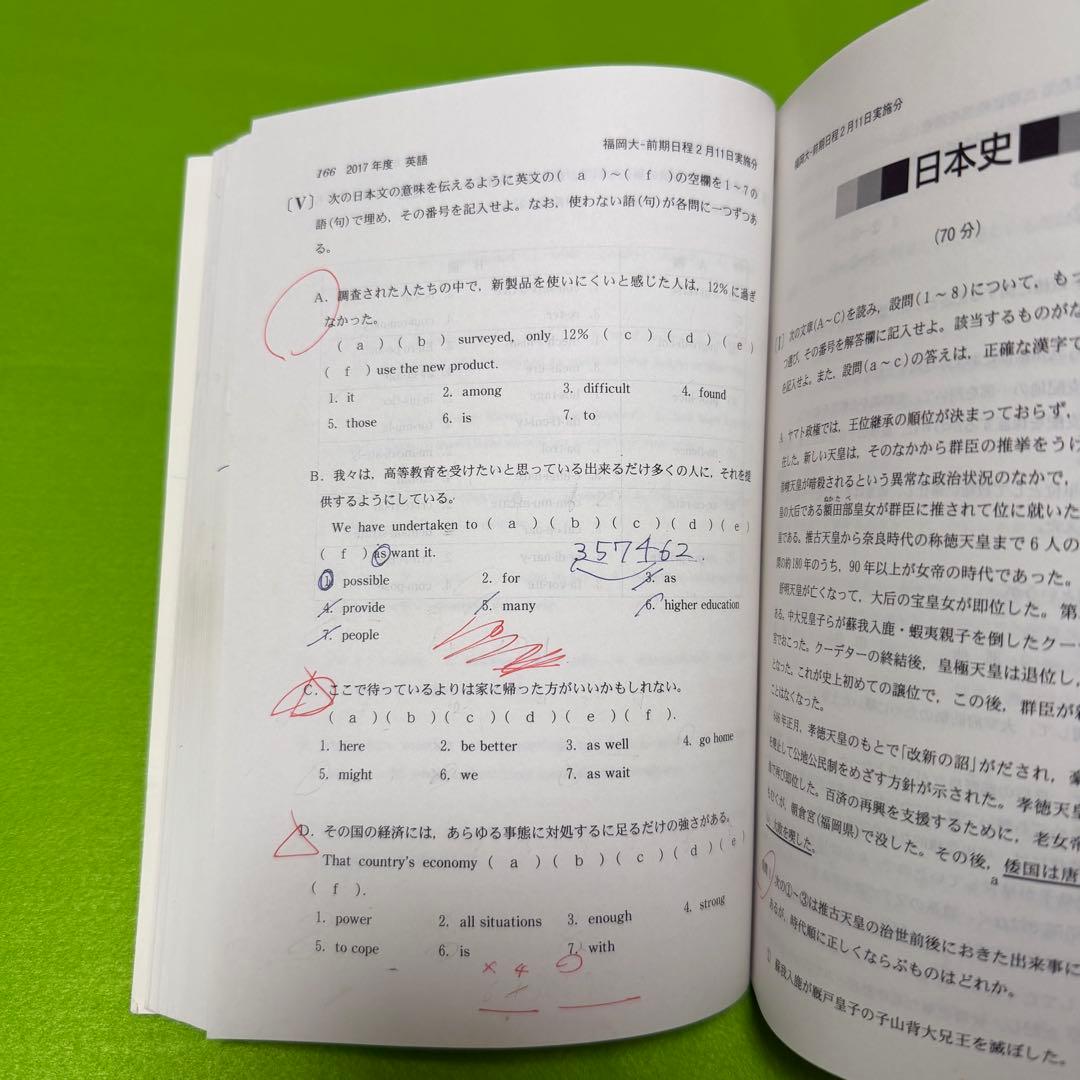 166 2017年度 英語
福岡大-前期日程2月11日実施分
〔V〕 次の日本文の意味を伝えるように英文の( a )～( f )の空欄を1～7の
語(句)で埋め，その番号を記入せよ。なお，使わない語(句)が各問に一つずつあ
る。
A. 調査された人たちの中で，新製品を使いにくいと感じた人は，12%に過ぎ
なかった。
( a ) ( b ) surveyed, only 12% ( c ) ( d ) ( e )
( f ) use the new product.
1. it 2. among 3. difficult 4. found
5. those 6. is 7. to
B. 我々は，高等教育を受けたいと思っている出来るだけ多くの人に，それを提
供するようにしている。
We have undertaken to ( a ) ( b ) ( c ) ( d ) ( e )
( f ) as want it.
357462
1. possible 2. for 3. as
4. provide 5. many 6. higher education
7. people
C. ここで待っているよりは家に帰った方がいいかもしれない。
( a ) ( b ) ( c ) ( d ) ( e ) ( f ).
1. here 2. be better 3. as well 4. go home
5. might 6. we 7. as wait
D. その国の経済には，あらゆる事態に対処するに足るだけの強さがある。
That country's economy ( a ) ( b ) ( c ) ( d ) ( e )
( f ).
1. power 2. all situations 3. enough 4. strong
5. to cope 6. is 7. with
× 4
福岡大-前期日程2月11日実施分
日本史
(70分)
〔I〕 次の文章(A～C)を読み，設問(1～8)について，もっ
つ選び，その番号を解答欄に記入せよ。該当するものがな
を記入せよ。また，設問(a～c)の答えは，正確な漢字で
A. ヤマト政権では，王位継承の順位が決まっておらず，
在した。新しい天皇は，そのなかから群臣の推挙をうけ
崇峻天皇が暗殺されるという異常な政治状況のなかで，
皇の大后である額田部皇女が群臣に推されて位に就いた
である。推古天皇から奈良時代の称徳天皇まで6人の
間の約180年のうち，90年以上が女帝の時代であった。
舒明天皇が亡くなって，大后の宝皇女が即位した。第
る。中大兄皇子らが蘇我入鹿・蝦夷親子を倒したクー
宮でおこった。クーデターの終結後，皇極天皇は退位し，
となった。これが史上初めての譲位で，この後，群臣が新
ことはなくなった。
646年正月，孝徳天皇のもとで「改新の詔」がだされ，豪
を廃止して公地公民制をめざす方針が示された。孝徳天皇
で再び即位した。百済の再興を支援するために，老女帝
むくが，朝倉宮(福岡県)で没した。その後，倭国は唐
a
大敗を喫した。
次の①～③は推古天皇の治世前後におきた出来事に
あるが，時代順に正しくならぶものはどれか。
① 蘇我入鹿が厩戸皇子の子山背大兄王を滅ぼした。